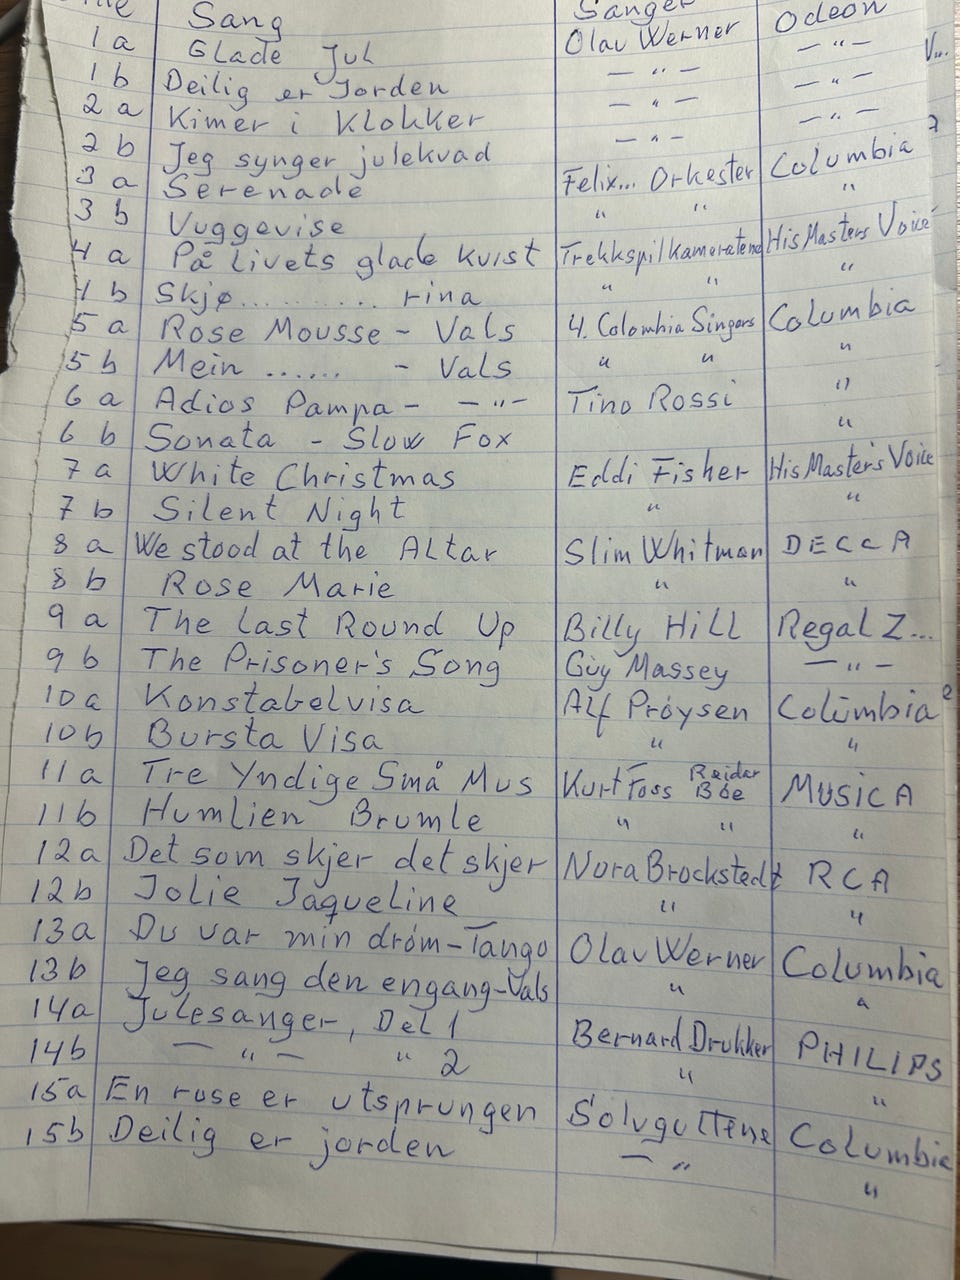 Sang Sanger Odeon
1a Glade Jul Olav Werner — " —
1b Deilig er Jorden — " — — " —
2a Kimer i Klokker — " — — " —
2b Jeg synger julekvad — " —
3a Serenade Felix... Orkester Columbia
3b Vuggevise " " "
4a På Livets glade kvist Trekkspilkameratene His Masters Voice
4b Skjø.......... rina " " "
5a Rose Mousse - Vals 4. Colombia Singers Columbia
5b Mein ...... - Vals " " "
6a Adios Pampa - — " — Tino Rossi "
6b Sonata - Slow Fox "
7a White Christmas Eddi Fisher His Master's Voice
7b Silent Night " "
8a We stood at the Altar Slim Whitman DECCA
8b Rose Marie " "
9a The Last Round Up Billy Hill Regal Z...
9b The Prisoner's Song Guy Massey — " —
10a Konstabelvisa Alf Prøysen Columbia
10b Bursta Visa " "
11a Tre Yndige Små Mus Kurt Foss Reidar Bøe MUSICA
11b Humlien Brumle " " "
12a Det som skjer det skjer Nora Brockstedt RCA
12b Jolie Jaqueline " "
13a Du var min drøm-Tango Olav Werner Columbia
13b Jeg sang den engang-Vals " "
14a Julesanger, Del 1 Bernard Drukker PHILIPS
14b — " — " 2 " "
15a En rose er utsprungen Sølvguttene Columbia
15b Deilig er jorden — " "